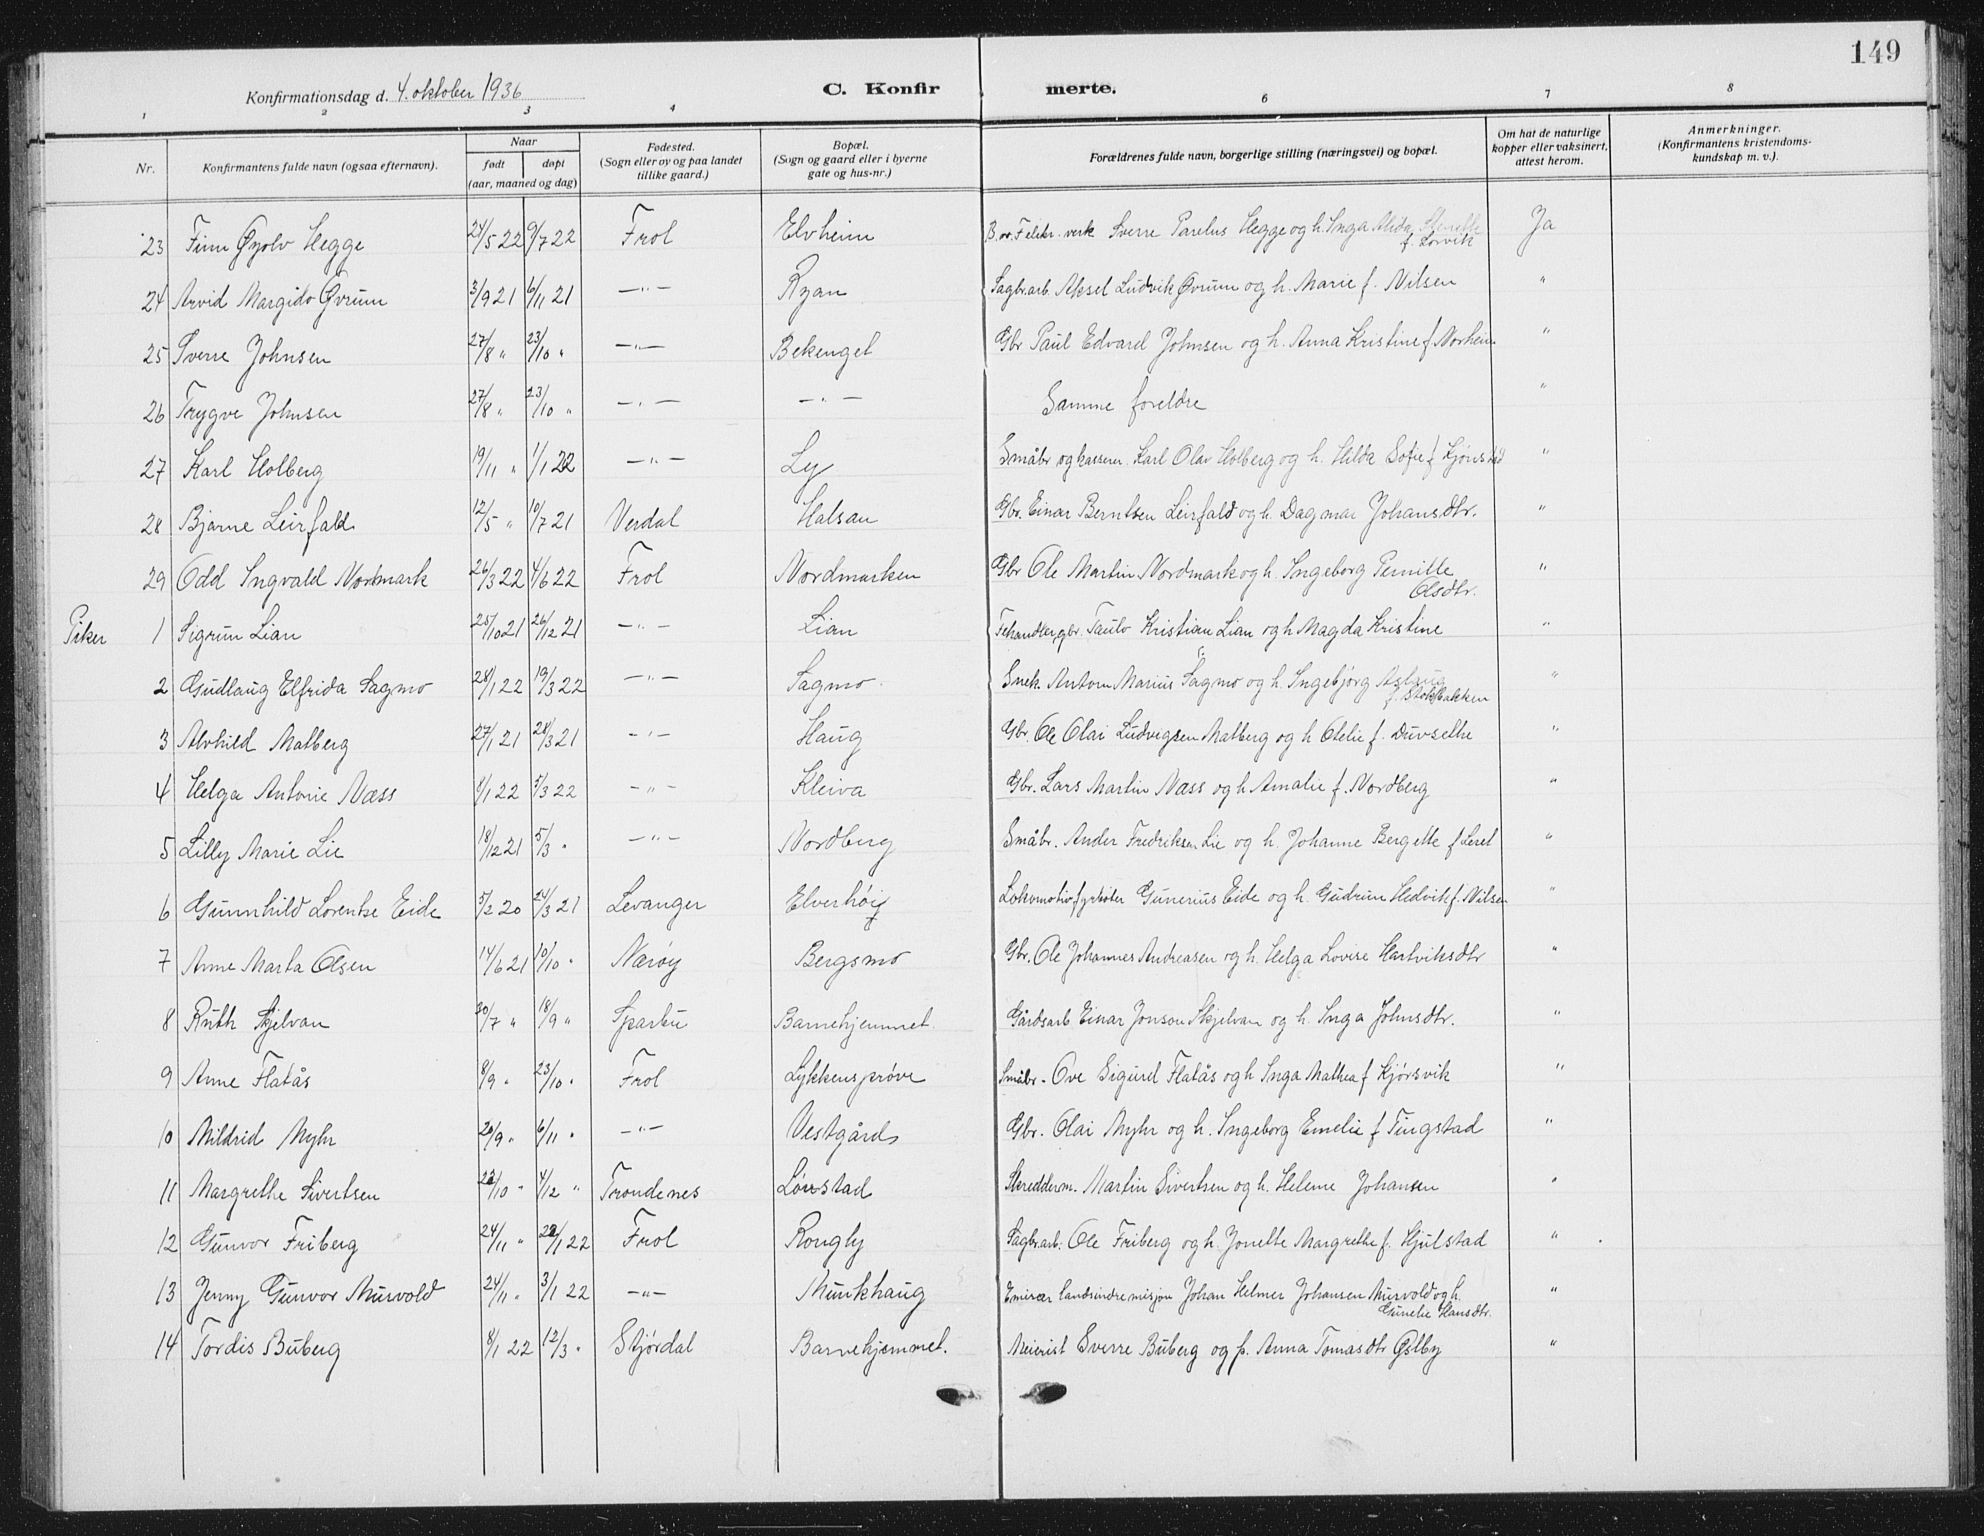 149
Konfirmationsdag d. 4. oktober 1936 C. Konfirmerte.
1 2 3 4 6 7 8
Nr. Konfirmantens fulde navn (ogsaa efternavn). Naar født døpt (aar, maaned og dag) Fødested. (Sogn eller oy og paa landet tillike gaard.) Bopæl. (Sogn og gaard eller i byerne gate og hus-nr.) Forældrenes fulde navn, borgerlige stilling (næringsvei) og bopæl. Om hat de naturlige kopper eller vaksinert, attest herom. Anmerkninger. (Konfirmantens kristendomskundskap m. v.).
23 Finn Øyolv Hegge 24/5 22 9/7 22 Frol Elvheim Sverre Parelus Hegge og h. Inga Alida f. Lorvik Ja
24 Arvid Margido Øvrum 3/9 21 6/11 21 —"— Ryan Sagbr.arb. Aksel Ludvik Øvrum og h. Marie f. Nilsen "
25 Sverre Johnsen 27/8 " 23/10 " —"— Bekenget Gbr Paul Edvard Johnsen og h. Anna Kristine f. Norheim "
26 Trygve Johnsen 27/8 " 23/10 " —"— —"— Samme foreldre "
27 Karl Holberg 19/11 " 1/1 22 —"— Ly Småbr og kasserer Karl Olav Holberg og h. Hilda Sofie f Kjønstad "
28 Bjarne Leirfald 12/5 " 10/7 21 Verdal Halsan Gbr. Einar Berntsen Leirfald og h. Dagmar Johansdtr. "
29 Odd Ingvald Nordmark 26/3 22 4/6 22 Frol Nordmarken Gbr Ole Martin Nordmark og h. Ingeborg Pernille Olsdtr. "
Piker 1 Sigrun Lian 25/10 21 26/12 21 —"— Lian Fehandler, gbr. Paulv Kristian Lian og h Magda Kristine "
2 Gudlaug Elfrida Sagmo 28/1 22 19/3 22 —"— Sagmo Snek. Anton Marius Sagmo og h. Ingebjørg Aslaug f. Stokbakken "
3 Alvhild Matberg 27/1 21 28/3 21 —"— Haug Gbr. Ole Olai Ludvigsen Matberg og h Otelie f. Duvsethe "
4 Helga Antonie Næss 8/1 22 5/3 22 —"— Kleiva Gbr. Lars Martin Næss og h Amalie f. Nordberg "
5 Lilly Marie Lie 18/12 21 5/3 " —"— Nordberg Småbr. Ander Fredriksen Lie og h. Johanne Bergette f Leret "
6 Gunnhild Lorentse Eide 5/2 20 24/3 21 Levanger Elverhøig Lokomotivfyrbøter Gunerius Eide og h Gudrun Hedvik f. Nilsen "
7 Anne Marta Olsen 14/6 21 10/10 " Nærøy Bergsmo Gbr. Ole Johannes Andreasen og h. Helga Lovise Hartviksdtr "
8 Ruth Skjelvan 30/7 " 18/9 " Sparbu Barnehjemmet. Gårdsarb Einar Jonson Skjelvan og h. Inga Johnsdtr. "
9 Anne Flatås 8/9 " 23/10 " Frol Lykkensprøve Småbr. Ove Sigurd Flatås og h Inga Mathea f Kjørsvik "
10 Mildrid Myhr 20/9 " 6/11 " —"— Vestgård Gbr. Olai Myhr og h. Ingeborg Emelie f Tingstad "
11 Margrethe Sivertsen 22/10 " 4/12 " Trondenes Lønstad Skredderm. Martin Sivertsen og h. Helene Johansen "
12 Gunvor Friberg 24/11 " 22/1 22 Frol Rongly Sagbr.arb. Ole Friberg og h. Jonette Margrethe f. Hjulstad "
13 Jenny Gunvor Murvold 24/11 " 3/1 22 —"— Munkhaug Emisær landsindremisjon Johan Helmer Johansen Murvold og h. Gunelie Hansdtr. "
14 Tordis Buberg 8/1 22 12/3 " Stjørdal Barnehjemmet. Meierist Sverre Buberg og p. Anna Tomasdtr Østby "